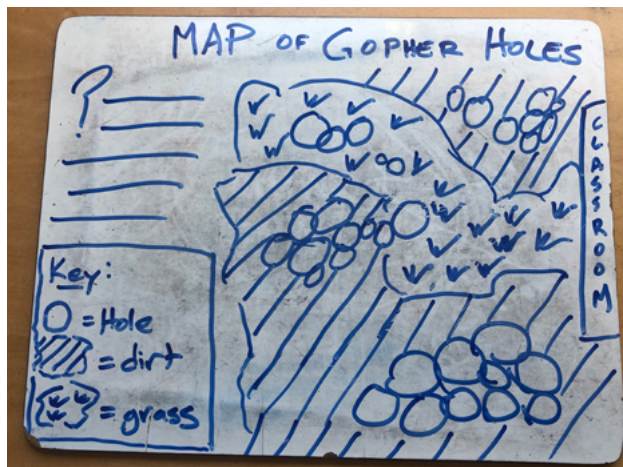 MAP OF GOPHER HOLES
?
CLASSROOM
Key:
= Hole
= dirt
= grass